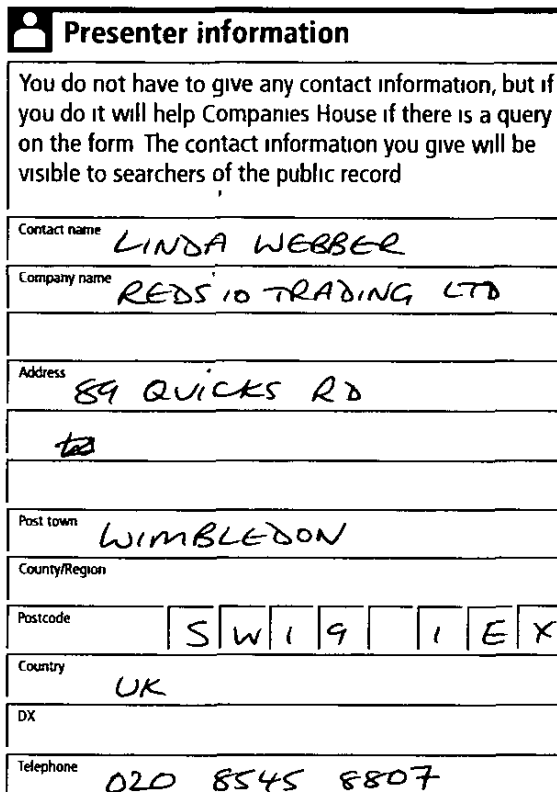 Presenter information
You do not have to give any contact information, but if
you do it will help Companies House if there is a query
on the form The contact information you give will be
visible to searchers of the public record
Contact name LINDA WEBBER
Company name REDS 10 TRADING LTD
Address 89 QUICKS RD
Post town WIMBLEDON
County/Region
Postcode SW19 1EX
Country UK
DX
Telephone 020 8545 8807